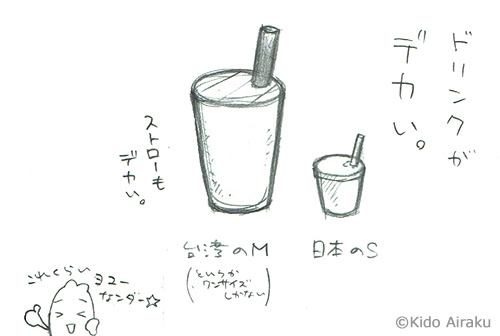 ドリンクが
デカい。
ストローも
デカい。
台湾のM
(というか
ワンサイズ
しかない)
日本のS
これくらい
ヨユー
なんダー☆
©Kido Airaku